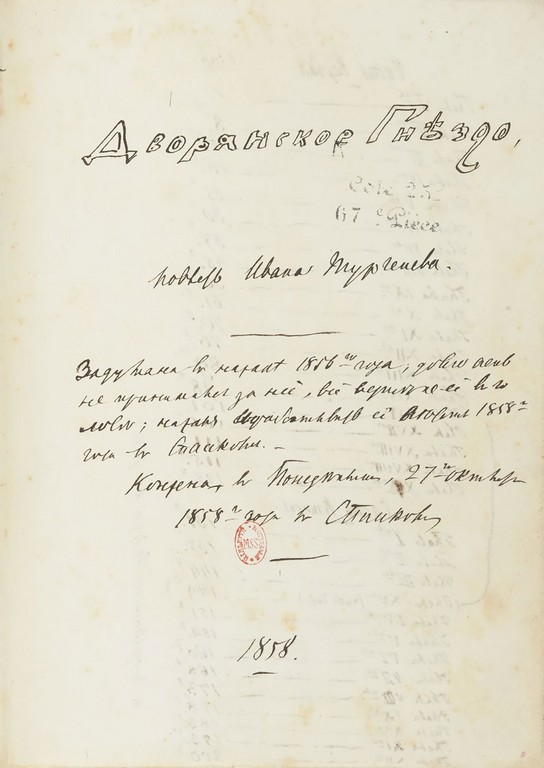 Дворянское Гнѣздо,
Cote 25
67 e Pièce
повѣсть Ивана Тургенева.
Задумана в началѣ 1856го года; долго очень
не принимался за неё, всё вертѣлъ её в го
лове; началъ выработывать её лѣтомъ 1858го
года в Спасскомъ. —
Кончена, в Понедѣльникъ, 27го октября
1858го года в Спасскомъ,
MSS
1858.